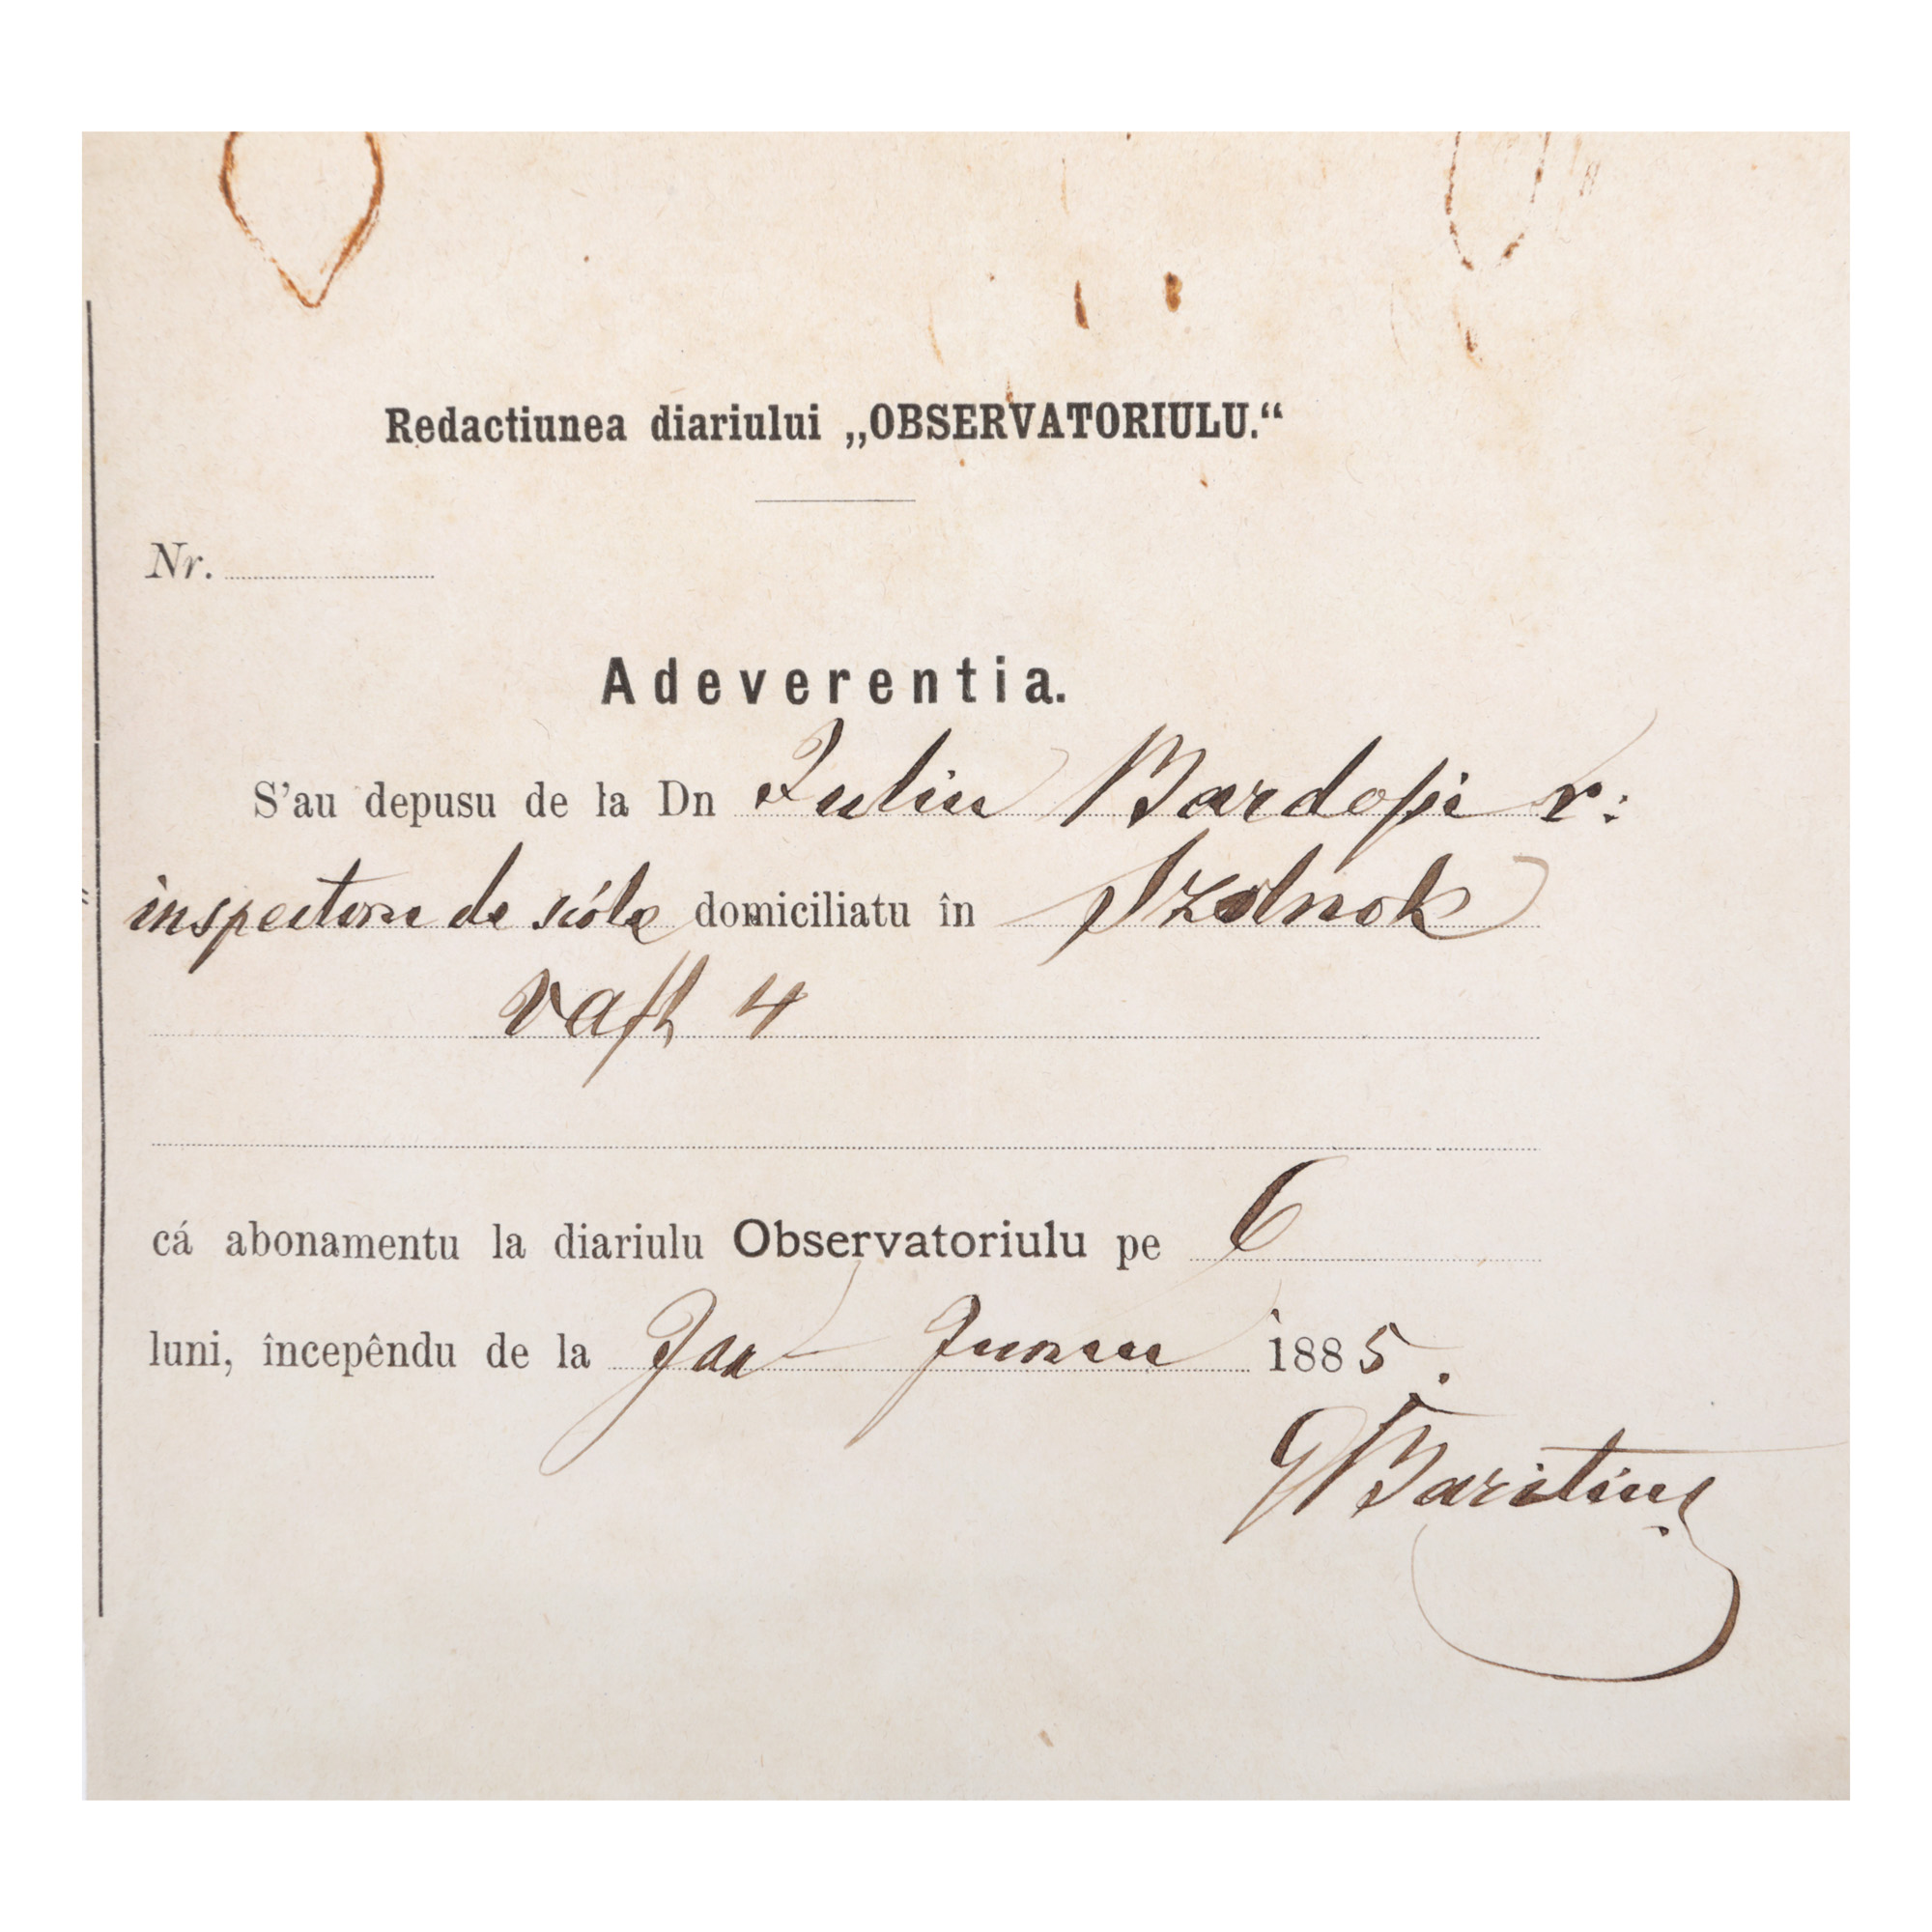 Redactiunea diariului „OBSERVATORIULU.“
Nr.
Adeverentia.
S’au depusu de la Dn Iuliu Bardosi r:
inspectoru de scóle domiciliatu în Szolnok
4
cá abonamentu la diariulu Observatoriulu pe 6
luni, începêndu de la Jan – Juniu 1885.
G Baritiu